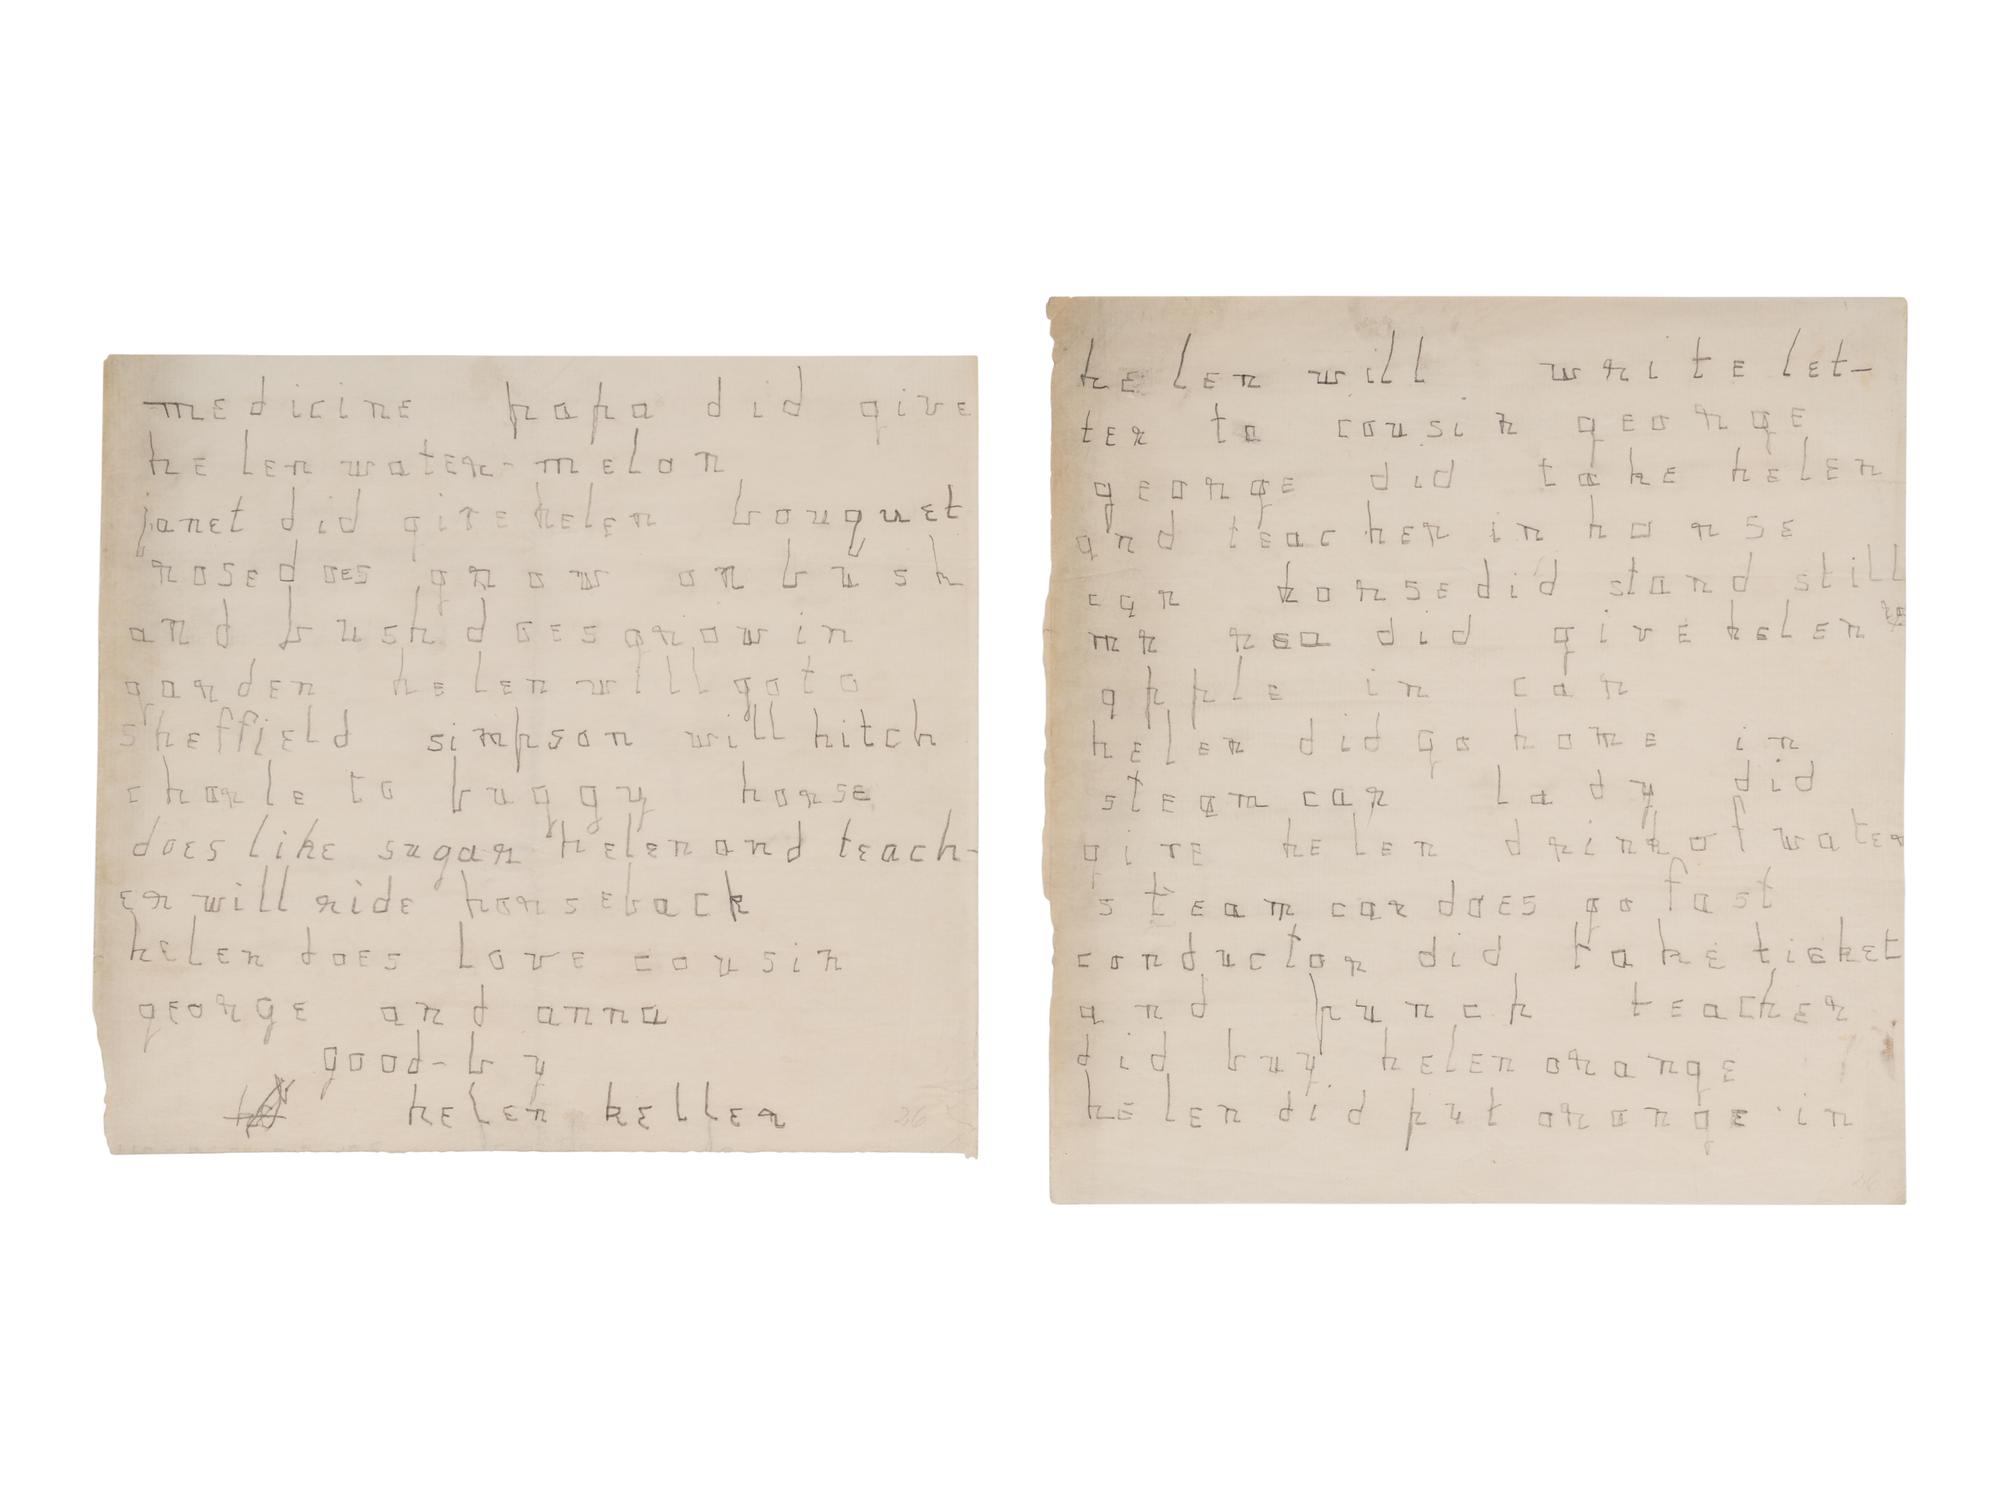 medicine papa did give
helen water-melon
janet did give helen bouquet
rose does grow on bush
and bush does grow in
garden helen will go to
sheffield simpson will hitch
charle to buggy horse
does like sugar helen and teach-
er will ride horseback
helen does love cousin
george and anna
good-by
helen keller
helen will write let-
ter to cousin george
george did take helen
and teacher in horse
car horse did stand still
mr rea did give helen
apple in car
helen did go home in
steam car lady did
give helen drink of water
steam car does go fast
conductor did take ticket
and punch teacher
did buy helen orange
helen did put orange in